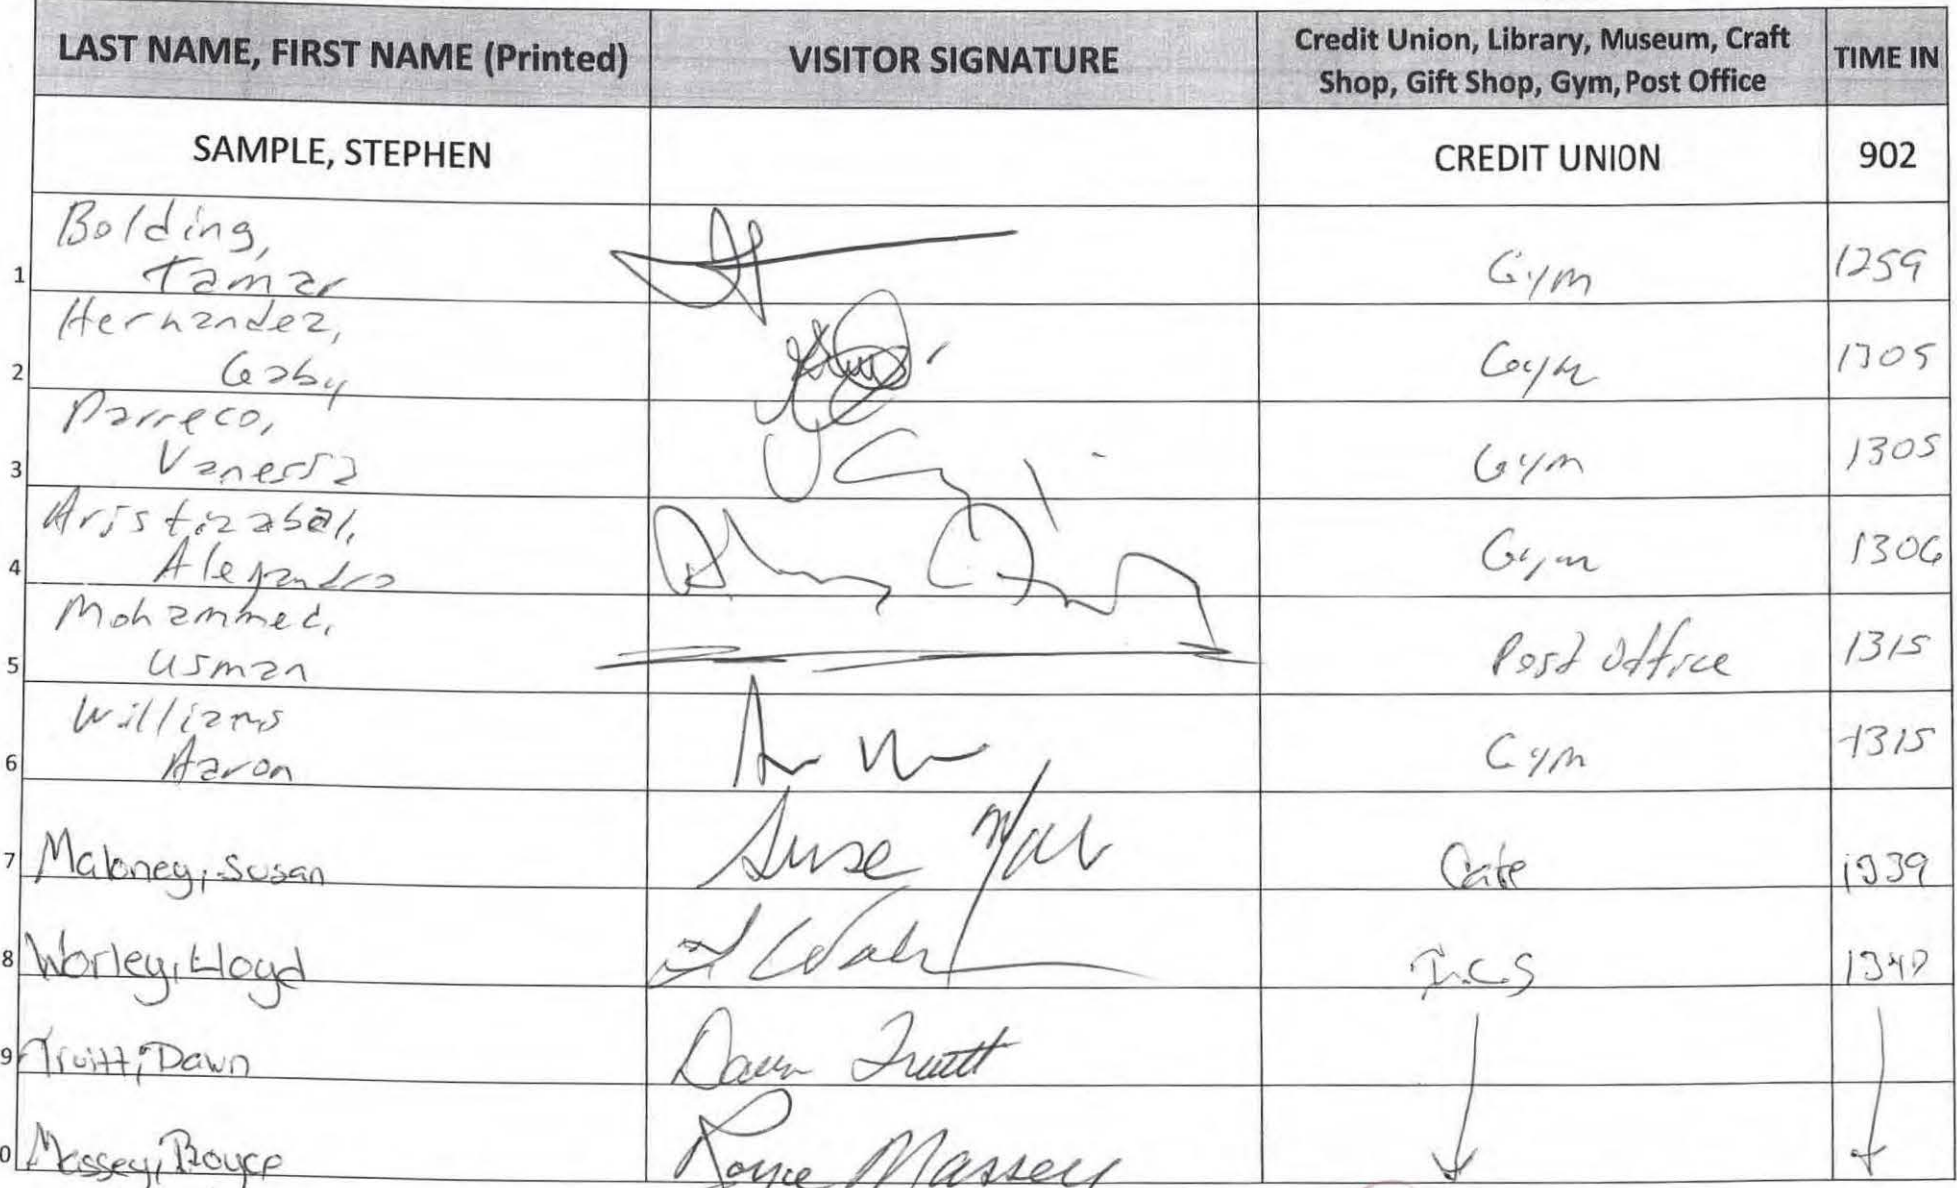 LAST NAME, FIRST NAME (Printed) VISITOR SIGNATURE Credit Union, Library, Museum, Craft Shop, Gift Shop, Gym, Post Office TIME IN
SAMPLE, STEPHEN CREDIT UNION 902
Bolding,
1 Tamar Gym 1259
Hernandez,
2 Gaby Gym 1305
Parreco,
3 Vanessa Gym 1305
Aristizabal,
4 Alejandra Gym 1306
Mohammed,
5 Usman Post Office 1315
Williams
6 Aaron Gym 1315
7 Maloney, Susan 1339
8 Worley, Lloyd 1340
9 Truitt, Dawn Dawn Truitt
0 Massey, Royce Royce Massey